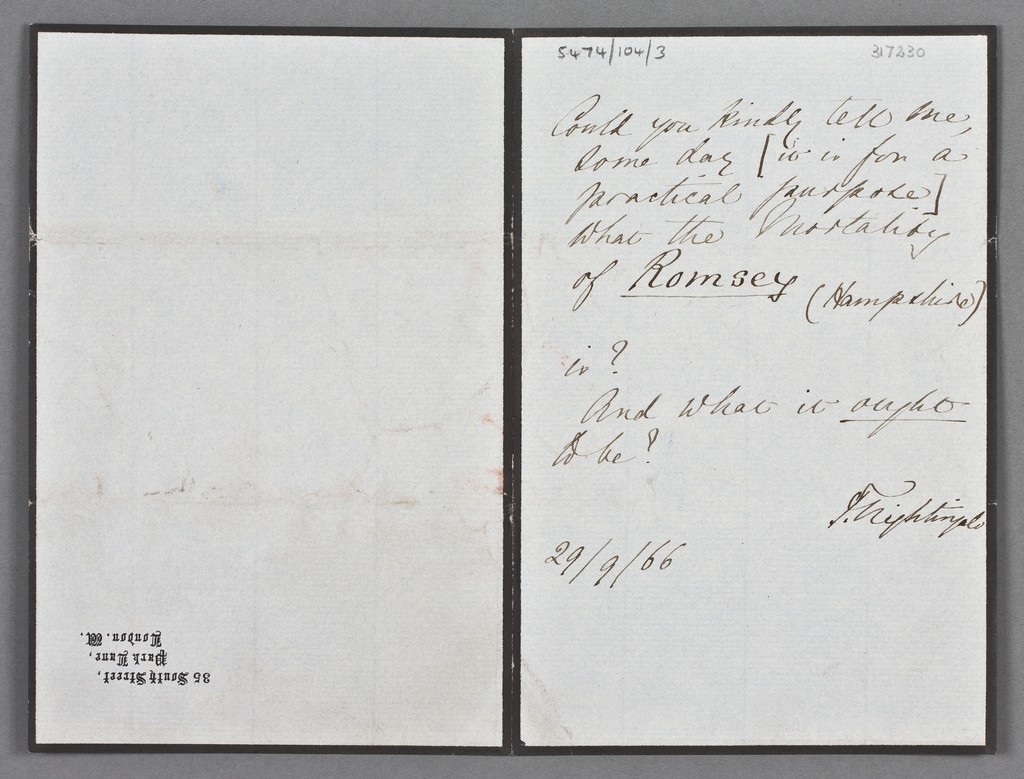 35 South Street,
Park Lane,
London. W.
5474/104/3
317230
Could you kindly tell me,
some day [it is for a
practical purpose]
what the Mortality
of Romsey (Hampshire)
is?
And what it ought
to be?
F. Nightingale
29/9/66